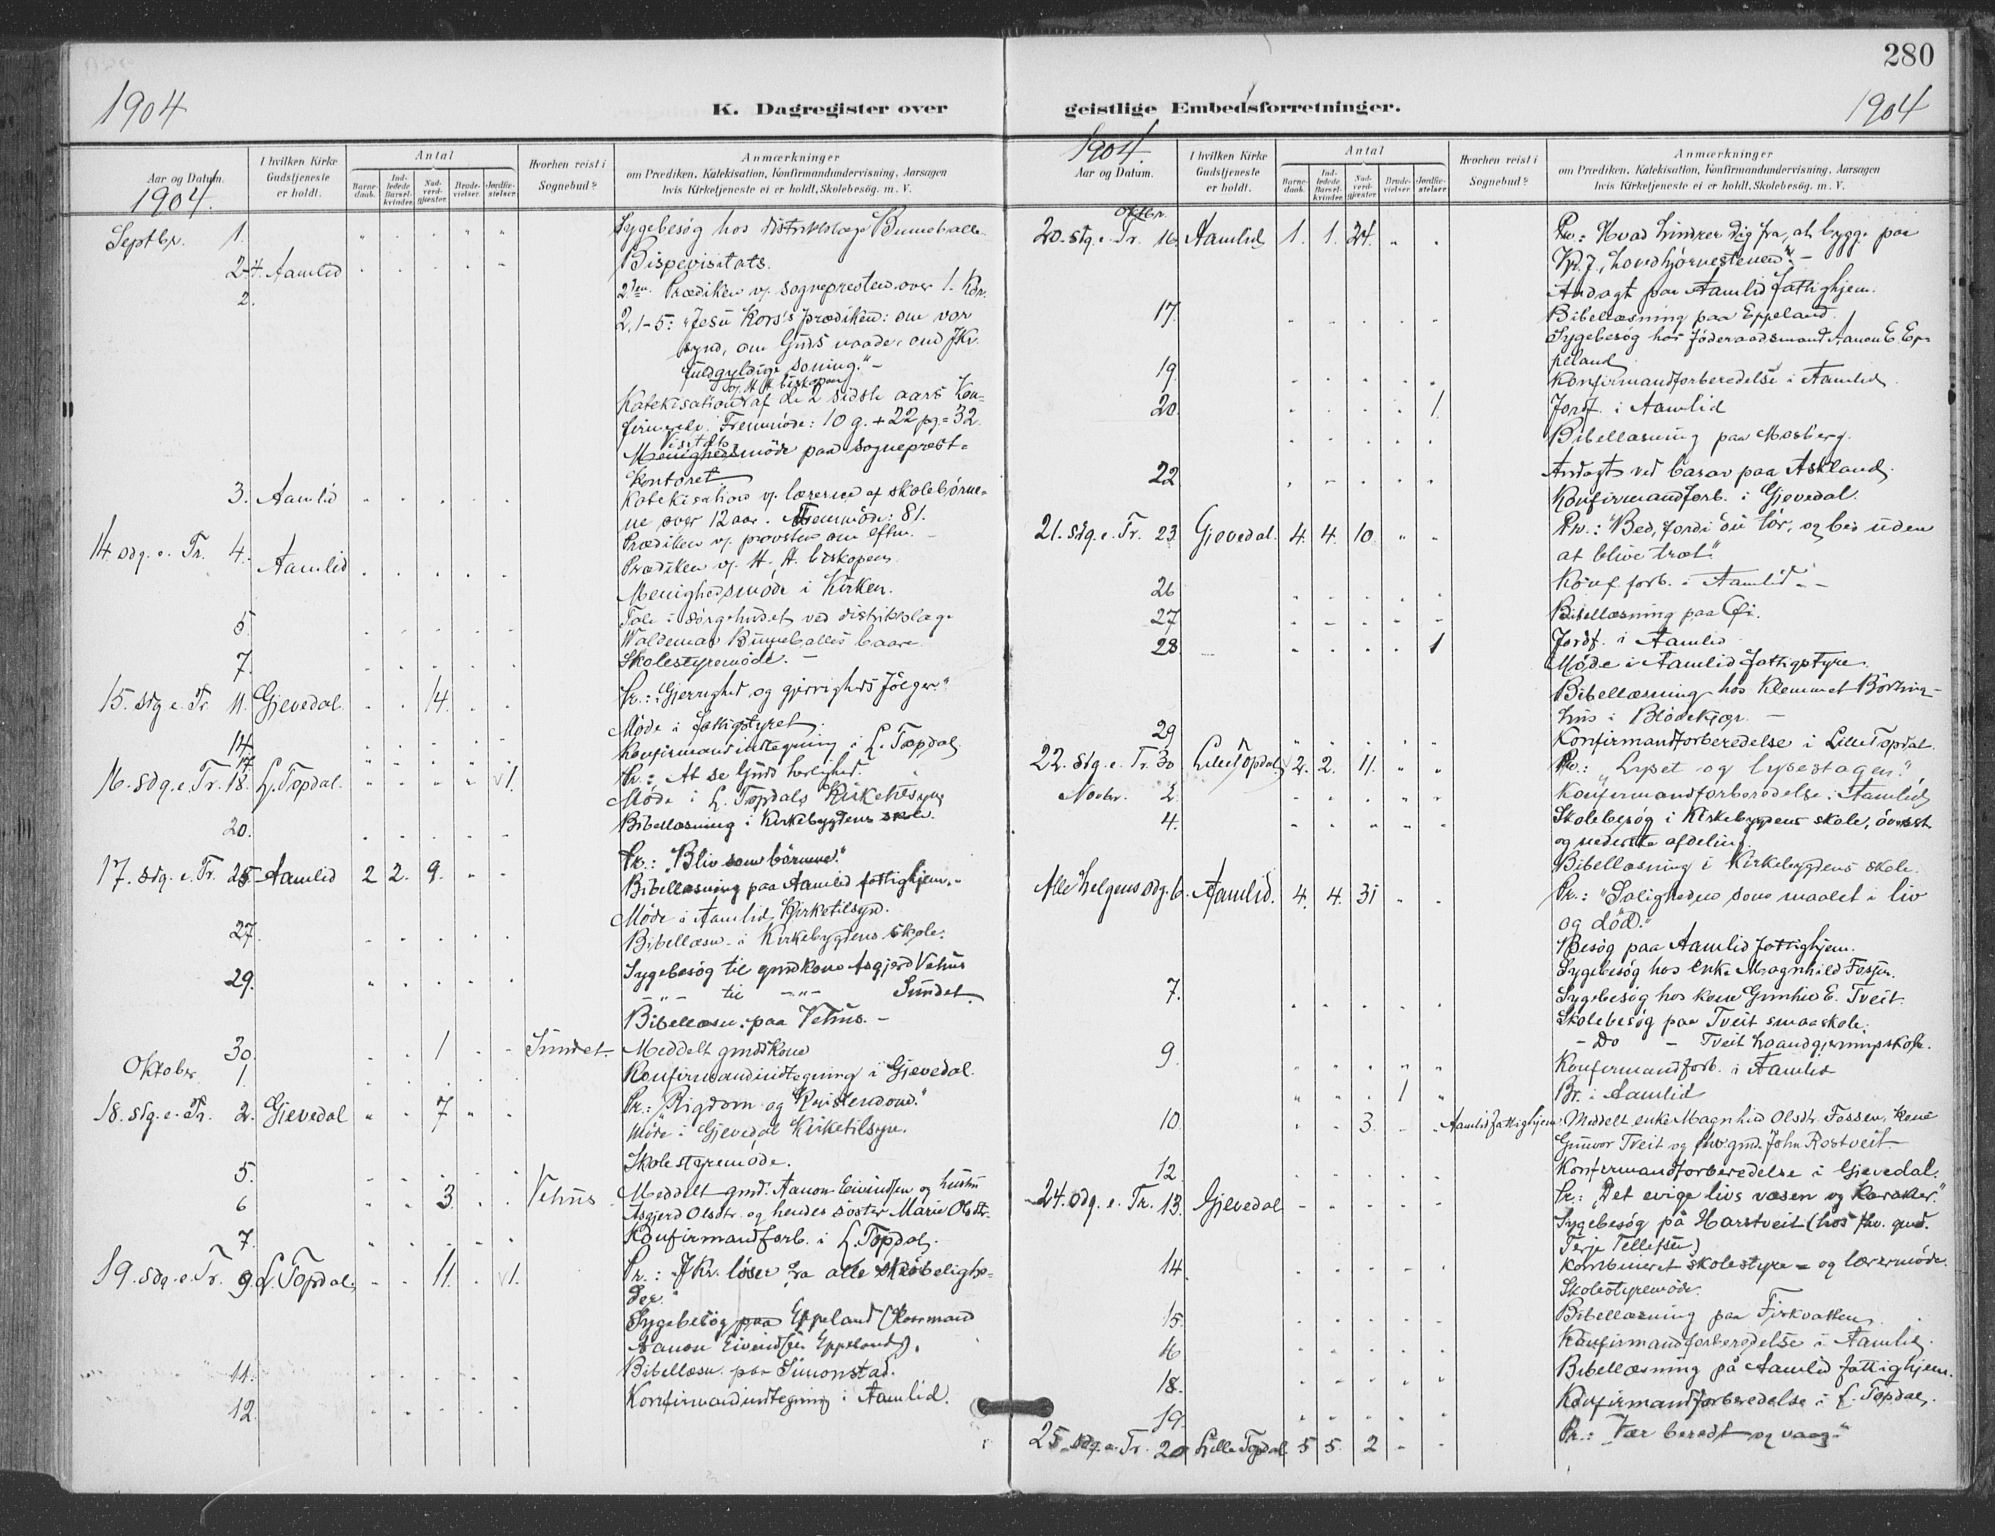 280
1904
K. Dagregister over
geistlige Embedsforretninger.
1904
Aar og Datum.
1904.
I hvilken Kirke
Gudstjeneste
er holdt.
Antal
Barne-
daab.
Ind-
ledede
Barsel-
kvinder.
Nad-
verd-
gjæster.
Brude-
vielser.
Jordfæ-
stelser.
Hvorhen reist i
Sognebud?
Anmærkninger
om Prædiken, Katekisation, Konfirmandundervisning, Aarsagen
hvis Kirketjeneste ei er holdt, Skolebesøg. m. V.
Septbr. 1. Sygebesøg hos distriktslæge Bunneballe.
2-4. Aamlid Bispevisitats.
2. 2den Prædiken v. sognepresten over 1. Kor.
2, 1-5: "Jesu Kors's prædiken: om vor
synd, om Guds naade, om J Kr.
fuldgyldige soning." -
v. H. H. biskopen
Katekisation af de 2 sidste aars kon-
firmerede. Fremmøde: 10 g. + 22 pg. = 32.
Visitats
møde paa sogneprest-
kontoret
3. Aamlid Katekisation v. lærerne af skolebørne-
ne over 12 aar. Fremmøde: 81.
Prædiken v. provsten om eftm.
14. sdg. e. Tr. 4. Aamlid Prædiken v. H. H. biskopen.
Menighedsmøde i Kirken.
5. Tale i sørgehuset ved distriktslæge
Waldemar Bunneballes baare.
7. Skolestyremøde. -
15. sdg e. Tr. 11. Gjevedal. 14. Pr.: "Gjerrighed og gjerrigheds følger."
Møde i fattigstyret.
14. Konfirmandindtegning i L. Topdal.
17.
16. sdg. e. Tr. 18. L. Topdal. 1. Pr.: At se Guds herlighed.
Møde i L. Topdals Kirketilsyn
20. Bibellæsning i Kirkebygdens skole.
17. sdg. e. Tr. 25 Aamlid 2 2. 9. Pr.: "Bliv som børnene."
Bibellæsning paa Aamlid fattighjem. -
Møde i Aamlid Kirketilsyn.
27. Bibellæsn. i Kirkebygdens skole.
29. Sygebesøg til gmdkone Asgjerd Vehus
-"- til -"- Sundet.
Bibellæsn. paa Vehus. -
30. 1 Sundet. Meddelt gmdskone
Oktober 1. Konfirmandindtegning i Gjevedal.
18. sdg. e. Tr. 2. Gjevedal 7 Pr.: "Rigdom og Kristendom."
Møde i Gjevedal Kirketilsyn.
5. Skolestyremøde.
6 3. Vehus Meddelt gmd. Aanon Eivindsen og hustru
Asgjerd Olsdtr. og hendes søster Marie Olsdtr.
7. Konfirmandforb. i L. Topdal.
19. sdg. e. Tr. 9 L. Topdal. 11. 1. Pr.: "J Kr. løser fra alle skrøbelighe-
der."
Sygebesøg paa Eppeland (
Aanon Eivindsen Eppeland).
11. Bibellæsn. paa Simonstad.
12. Konfirmandindtegning i Aamlid.
1904.
Aar og Datum.
I hvilken Kirke
Gudstjeneste
er holdt.
Antal
Barne-
daab.
Ind-
ledede
Barsel-
kvinder.
Nad-
verd-
gjæster.
Brude-
vielser.
Jordfæ-
stelser.
Hvorhen reist i
Sognebud?
Anmærkninger
om Prædiken, Katekisation, Konfirmandundervisning, Aarsagen
hvis Kirketjeneste ei er holdt, Skolebesøg. m. V.
Oktbr.
20. sdg. e. Tr. 16. Aamlid 1. 1. 24. Pr.: Hvad hindrer dig fra, at bygge paa
"hovedhjørnestenen"? -
Andagt paa Aamlid fattighjem.
17. Bibellæsning paa Eppeland.
Sygebesøg hos føderaadsmand Aanon E. Ep-
peland
19. Konfirmandforberedelse i Aamlid.
20. 1. Jordf. i Aamlid
Bibellæsning paa Mosberg.
22 Andagt ved basar paa Askland.
Konfirmandforb. i Gjevedal.
21. sdg. e. Tr. 23 Gjevedal. 4. 4. 10. Pr.: "Bed, fordi du tør, og bed uden
at blive træt."
26 Konf. forb. i Aamlid. -
27 Bibellæsning paa
28 1 Jordf. i Aamlid
Møde i Aamlid fattigstyre.
Bibellæsning hos Klemmet
hus i -
29 Konfirmandforberedelse i Lille Topdal.
22. sdg. e. Tr. 30 Lille Topdal 2. 2. 11. Pr.: "Lyset og lysestagen."
Novbr. 2. Konfirmandforberedelse i Aamlid
4. Skolebesøg i Kirkebygdens skole, øverste
og nederste afdeling.
Bibellæsning i Kirkebygdens skole.
Alle helgens sdg. 6. Aamlid. 4. 4. 31 Pr.: "Saligheden som maalet i liv
og død."
Besøg paa Aamlid fattighjem.
Sygebesøg hos enke Magnhild Fossen.
7. Sygebesøg hos kone Gunhild E. Tveit.
Skolebesøg paa Tveit smaaskole.
- Do - Tveit haandgjerningsskole.
9. Konfirmandforb. i Aamlid
1 Br. i Aamlid
10. 3. Aamlid fattighjem. Meddelt enke Magnhild Olsdtr. Fossen, kone
Gunvor Tveit og fhv. gmd. John Rostveit
12 Konfirmandforberedelse i Gjevedal.
24. sdg. e. Tr. 13. Gjevedal Pr.: "Det evige livs væsen og karakter."
Sygebesøg på Harstveit (hos fhv. gmd.
Terje Tellefsen)
14. Kombineret skolestyre- og lærermøde.
Skolestyremøde.
15. Bibellæsning paa Fiskvatten.
16 Konfirmandforberedelse i Aamlid.
Bibellæsning på Aamlid fattighjem.
18. Konfirmandforberedelse i L. Topdal.
19.
25. sdg. e. Tr. 20 Lille Topdal 5 5. 2 Pr.: "Vær beredt og vaag."